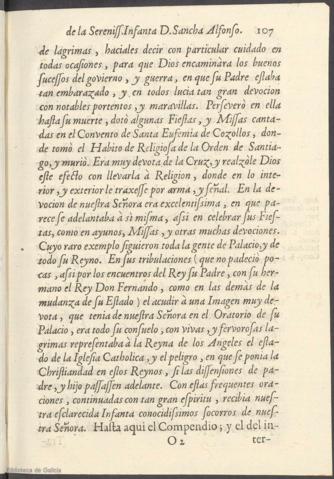 de la Sereniss. Infanta D. Sancha Alfonso. 107
de lagrimas, haciales decir con particular cuidado en
todas ocasiones, para que Dios encaminàra los buenos
sucessos del govierno, y guerra, en que su Padre estaba
tan embarazado, y en todos lucia tan gran devocion
con notables portentos, y maravillas. Perseverò en ella
hasta su muerte, dotò algunas Fiestas, y Missas canta-
das en el Convento de Santa Eufemia de Cozollos, don-
de tomò el Habito de Religiosa de la Orden de Santia-
go, y muriò. Era muy devota de la Cruz, y realzòle Dios
este efecto con llevarla à Religion, donde en lo inte-
rior, y exterior le traxesse por arma, y señal. En la de-
vocion de nuestra Señora era excelentissima, en que pa-
rece se adelantaba à si misma, assi en celebrar sus Fies-
tas, como en ayunos, Missas, y otras muchas devociones.
Cuyo raro exemplo siguieron toda la gente de Palacio, y de
todo su Reyno. En sus tribulaciones (que no padeciò po-
cas, assi por los encuentros del Rey su Padre, con su her-
mano el Rey Don Fernando, como en las demàs de la
mudanza de su Estado) el acudir à una Imagen muy de-
vota, que tenia de nuestra Señora en el Oratorio de su
Palacio, era todo su consuelo, con vivas, y fervorosas la-
grimas representaba à la Reyna de los Angeles el esta-
do de la Iglesia Catholica, y el peligro, en que se ponia la
Christiandad en estos Reynos, si las dissensiones de pa-
dre, y hijo passassen adelante. Con estas frequentes ora-
ciones, continuadas con tan gran espiritu, recibia nues-
tra esclarecida Infanta conocidissimos socorros de nues-
tra Señora. Hasta aqui el Compendio; y el del in-
O 2 ter-
Biblioteca de Galicia